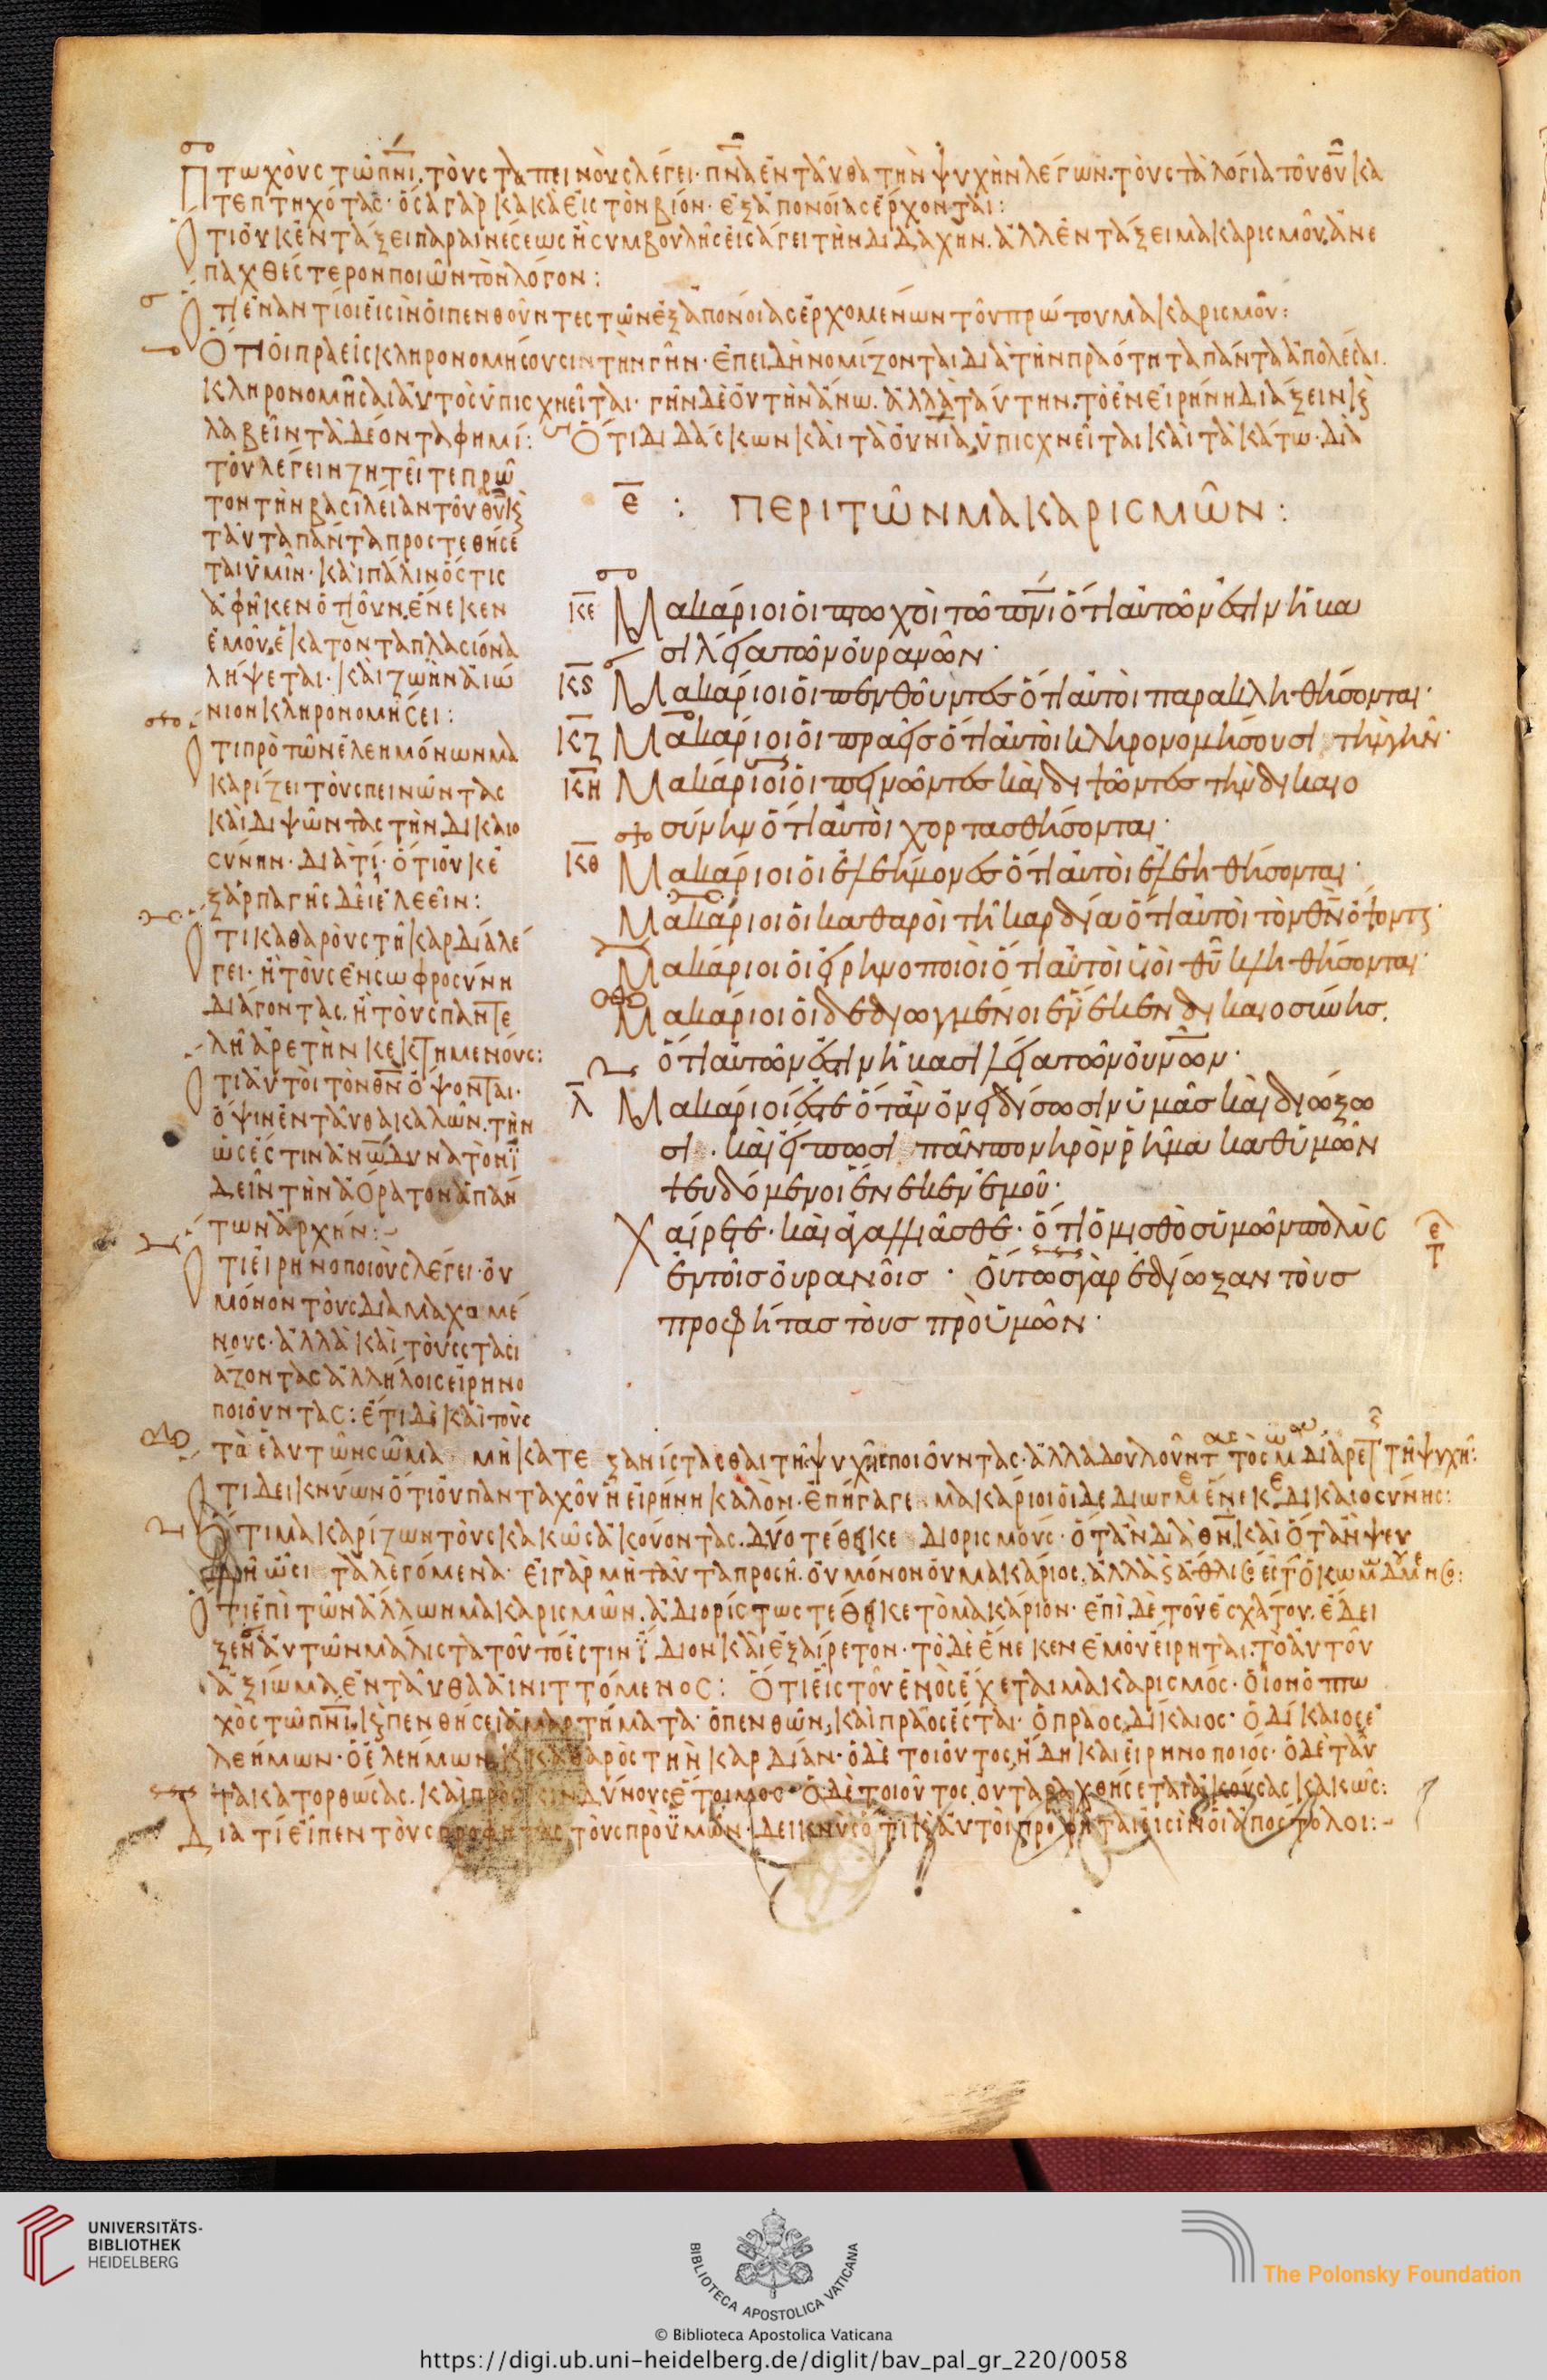 Πτωχοὺς τῶ πνι. τοὺς ταπεινοὺς λέγει· πνα ἐνταῦθα τὴν ψυχὴν λέγων. τοὺς τὰ λόγια τοῦ θυ κα
τεπτηχότας· ὅσα γὰρ κακὰ εἰς τὸν βίον· ἐξ ἀπονοίας ἔρχονται:
Ὅτι οὐκ ἐν τάξει παραινέσεως ἢ συμβουλῆς εἰσάγει τὴν διδαχήν. ἀλλ ἐν τάξει μακαρισμοῦ, ἀνε
παχθέστερον ποιῶν τὸν λόγον:
Ὅτι ἐναντίοι εἰσὶν οἱ πενθοῦντες τῶν ἐξ ἀπονοίας ἐρχομένων τοῦ πρώτου μακαρισμοῦ:
Ὅτι οἱ πραεῖς κληρονομήσουσιν τὴν γῆν· ἐπειδὴ νομίζονται διὰ τὴν πραότητα πάντα ἀπολέσαι.
κληρονομῆσαι αὐτοὺς ὑπισχνεῖται· γῆν δὲ οὐ τὴν ἄνω. ἀλλὰ ταύτην. τὸ ἐν εἰρήνη διάξειν κ
λαβεῖν τὰ δέοντα φημί: Ὅτι διδάσκων καὶ τὰ οὐνια, ὑπισχνεῖται καὶ τὰ κάτω· διὰ
τοῦ λέγειν ζητεῖτε πρῶ
τον τὴν βασιλείαν τοῦ θυ κ
ταῦτα πάντα προστεθήσε
ται ὑμῖν· καὶ πάλιν ὅστις
ἀφῆκεν ὁτιοῦν, ἕνεκεν
ἐμοῦ, ἑκατονταπλασίονα
λήψεται· καὶ ζωὴν αἰώ
νιον κληρονομήσει:
Ὅτι πρὸ τῶν ἐλεημόνων μα
καρίζει τοὺς πεινῶντας
καὶ διψῶντας τὴν δικαιο
σύνην· διατί· ὅτι οὐκ ἐ
ξ ἁρπαγῆς δεῖ ἐλεεῖν:
Ὅτι καθαροὺς τῆ καρδία λέ
γει· ἢ τοὺς ἐν σωφροσύνη
διάγοντας. ἢ τοὺς παντε
λῆ ἀρετὴν κεκτημένους:
Ὅτι αὐτοὶ τὸν θν ὄψονται·
ὄψιν ἐνταῦθα καλῶν. τὴν
ὡς ἐστιν ἀνω δυνατὸν ἰ
δεῖν τὴν ἀόρατον ἁπάν
των ἀρχήν:
Ὅτι εἰρηνοποιοὺς λέγει· οὐ
μόνον τοὺς διαμαχομέ
νους· ἀλλὰ καὶ τοὺς στασι
άζοντας ἀλλήλοις εἰρηνο
ποιοῦντας: ἔτι δὲ καὶ τοὺς
ε : ΠΕΡΙ ΤΩΝ ΜΑΚΑΡΙΣΜΩΝ:
ΚΕ Μακάριοι οἱ πτωχοὶ τῶ πνι ὅτι αὐτῶν ἐστιν ἡ βα
σιλεία τῶν οὐρανῶν·
Κς Μακάριοι οἱ πενθοῦντες ὅτι αὐτοὶ παρακληθήσονται·
ΚΖ Μακάριοι οἱ πραεῖς ὅτι αὐτοὶ κληρονομήσουσι τὴν γῆν·
ΚΗ Μακάριοι οἱ πεινῶντες καὶ διψῶντες τὴν δικαιο
σύνην ὅτι αὐτοὶ χορτασθήσονται·
Κθ Μακάριοι οἱ ἐλεήμονες ὅτι αὐτοὶ ἐλεηθήσονται·
Μακάριοι οἱ καθαροὶ τῆ καρδία ὅτι αὐτοὶ τὸν θν ὄψοντς·
Μακάριοι οἱ εἰρηνοποιοὶ ὅτι αὐτοὶ υἱοὶ θυ κληθήσονται·
Μακάριοι οἱ δεδιωγμένοι ἕνεκεν δικαιοσύνης.
ὅτι αὐτῶν ἐστιν ἡ βασιλεία τῶν οὐνων·
Λ Μακάριοί ἐστε ὅταν ὀνειδίσωσιν ὑμᾶς καὶ διώξω
σι· καὶ εἴπωσι πᾶν πονηρὸν ῥῆμα καθ ὑμῶν
ψευδόμενοι ἕνεκεν ἐμοῦ·
Χαίρετε· καὶ ἀγαλλιᾶσθε· ὅτι ὁ μισθὸς ὑμῶν πολὺς
ἐν τοῖς οὐρανοῖς · οὕτως γὰρ ἐδίωξαν τοὺς
προφήτας τοὺς πρὸ ὑμῶν·
τὰ ἑαυτῶν σῶμα μὴ κατεξανίστασθαι τῆς ψυχῆς ποιοῦντας· ἀλλὰ δουλοῦντ τῆ ψυχῆ:
Ὅτι δεικνύων ὅτι οὐ πανταχοῦ ἡ εἰρήνη καλόν· ἐπήγαγε μακάριοι οἱ δεδιωγμένοι ἕνεκε δικαιοσύνης:
Ὅτι μακαρίζων τοὺς κακῶς ἀκούοντας. δύο τέθεικε διορισμούς· ὅταν διὰ θν, καὶ ὅταν ψευ
δῆ ὦσι τὰ λεγόμενα· εἰ γὰρ μὴ ταῦτα προσῆ. οὐ μόνον οὐ μακάριος. ἀλλὰ
Ὅτι ἐπὶ τῶν ἄλλων μακαρισμῶν. ἀδιορίστως τέθεικε τὸ μακάριον· ἐπὶ δὲ τοῦ ἐσχάτου. ἔδει
ξεν αὐτῶν μάλιστα τοῦτό ἐστιν ἴδιον καὶ ἐξαίρετον· τὸ δὲ ἕνεκεν ἐμοῦ εἴρηται. τὸ αὐτοῦ
ἀξίωμα ἐνταῦθα αἰνιττόμενος: Ὅτι εἷς τοῦ ἑνὸς ἔχεται μακαρισμός· οἷον ὁ πτω
χὸς τῶ πνι, κ πενθήσει ἁμαρτήματα· ὁ πενθῶν, καὶ πρᾶος ἔσται· ὁ πρᾶος, δίκαιος· ὁ δίκαιος ἐ
λεήμων· ὁ ἐλεήμων, κ καθαρὸς τὴν καρδίαν· ὁ δὲ τοιοῦτος, ἤδη καὶ εἰρηνοποιός· ὁ δὲ ταῦ
τα κατορθώσας. καὶ πρὸς κινδύνους ἕτοιμος· ὁ δὲ τοιοῦτος οὐ ταραχθήσεται ἀκούσας κακῶς:
Διατί εἶπεν τοὺς προφήτας τοὺς πρὸ ὑμῶν· δεικνὺς ὅτι κ αὐτοὶ προφῆται εἰσὶν οἱ ἀπόστολοι:
UNIVERSITÄTS-
BIBLIOTHEK
HEIDELBERG
BIBLIOTECA APOSTOLICA VATICANA
The Polonsky Foundation
© Biblioteca Apostolica Vaticana
https://digi.ub.uni-heidelberg.de/diglit/bav_pal_gr_220/0058